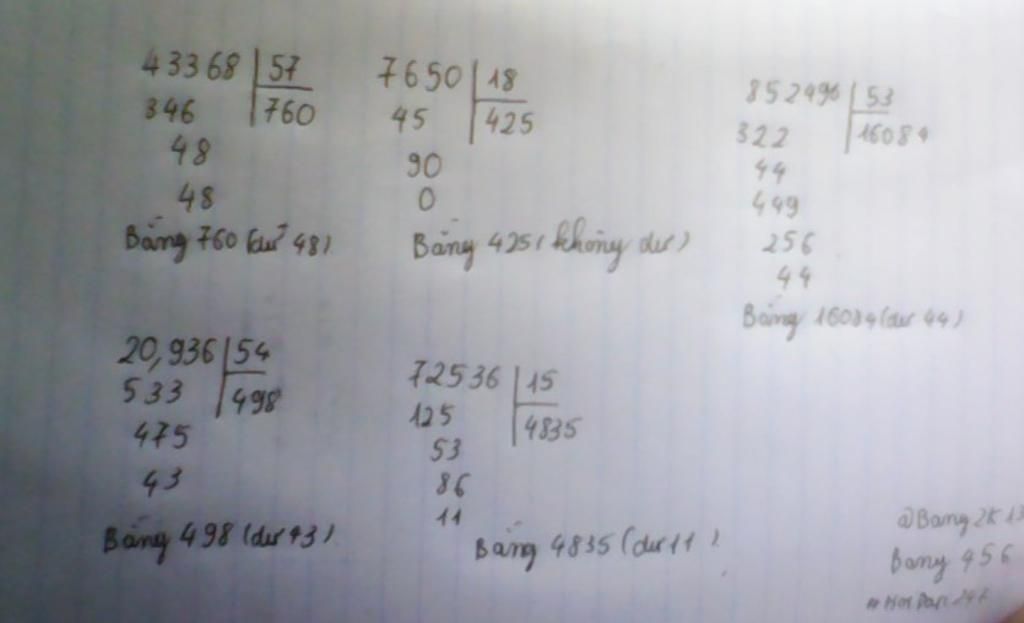 43368 57
346 760
48
48
Bằng 760 (dư 48)
7650 18
45 425
90
0
Bằng 425 (không dư)
852496 53
322 16084
44
449
256
44
Bằng 16084 (dư 44)
20,936 54
533 498
475
43
Bằng 498 (dư 43)
72536 15
125 4835
53
86
11
Bằng 4835 (dư 11)
@Bang 2K13
Bang 456